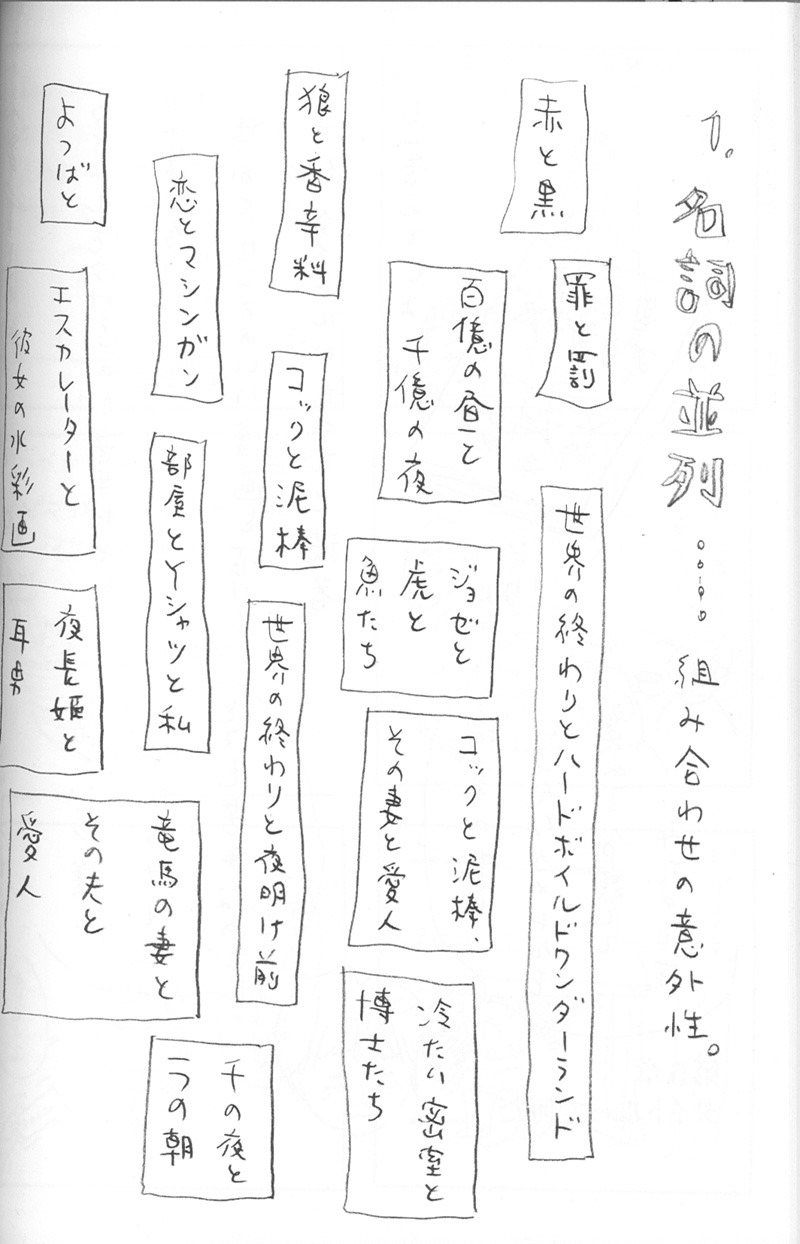 1. 名詞の並列……組み合わせの意外性。
赤と黒
罪と罰
世界の終わりとハードボイルドワンダーランド
百億の昼と
千億の夜
ジョゼと
虎と
魚たち
コックと泥棒、
その妻と愛人
冷たい密室と
博士たち
狼と香辛料
コックと泥棒
世界の終わりと夜明け前
恋とマシンガン
部屋とYシャツと私
竜馬の妻と
その夫と
愛人
千の夜と
一つの朝
よつばと
エスカレーターと
彼女の水彩画
夜長姫と
耳男